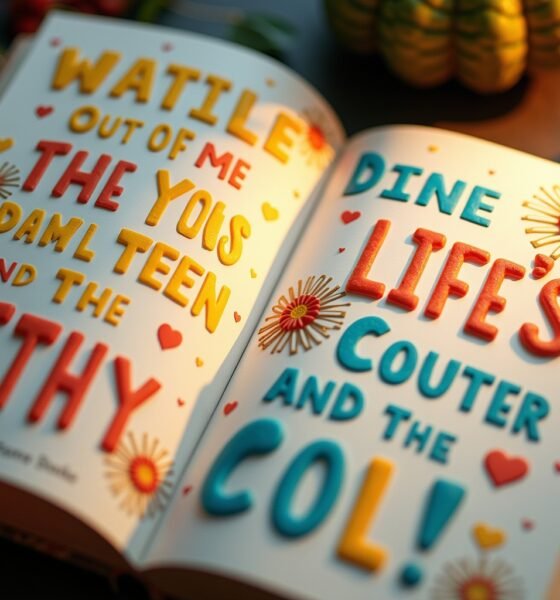 WATILE
OUT OF ME
THE YOIS
DAML TEEN
AND THE
THY
DINE
LIFE'S
COUTER
AND THE
COL!